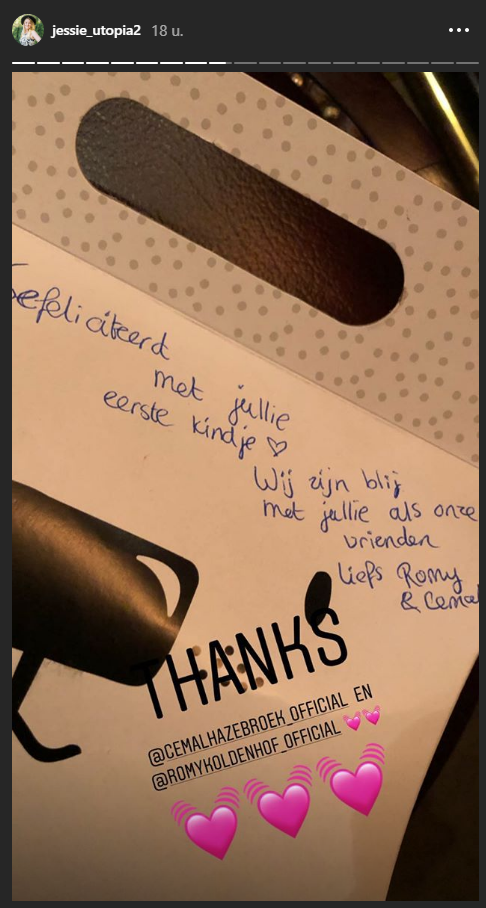 jessie_utopia2 18 u.
efeliciteerd
met jullie
eerste kindje ♡
Wij zijn blij
met jullie als onze
vrienden
liefs Romy
& Cemal
THANKS
@CEMALHAZEBROEK_OFFICIAL EN
@ROMYKOLDENHOF_OFFICIAL 💓💓
💓💓💓